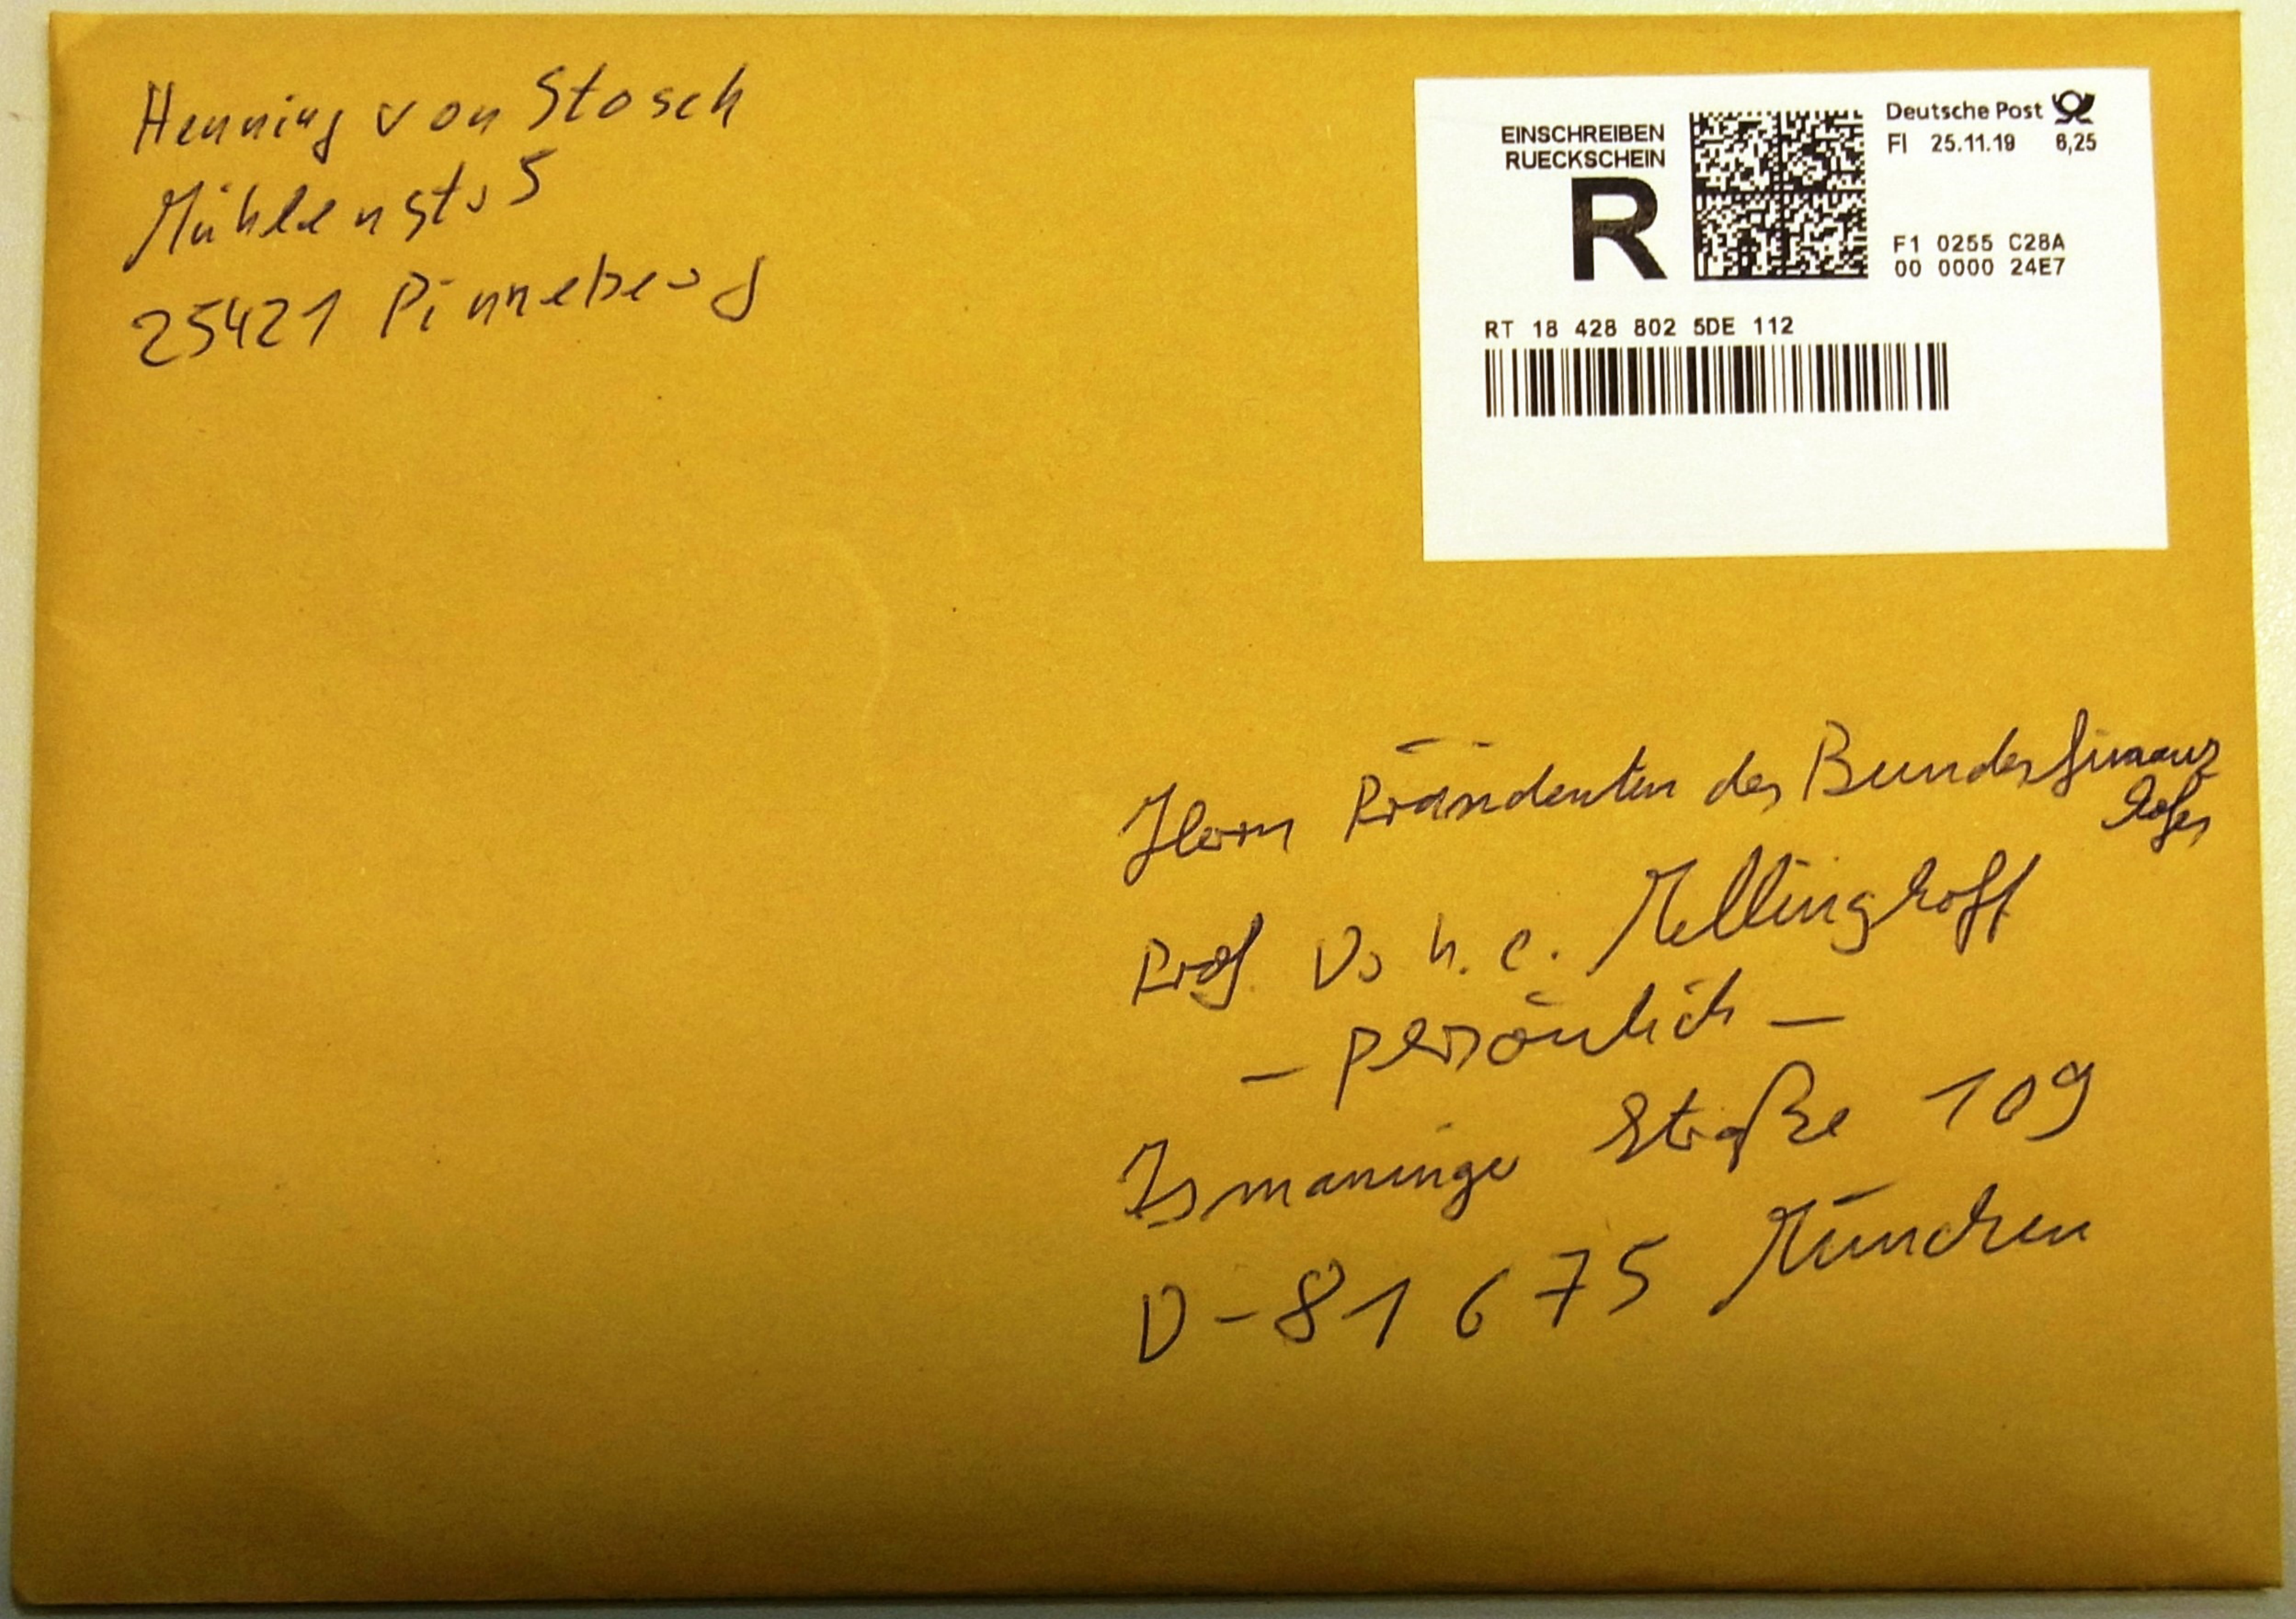 Henning von Stosch
Mühlenstr 5
25421 Pinneberg
EINSCHREIBEN
RUECKSCHEIN
R
Deutsche Post
FI 25.11.19 6,25
F1 0255 C28A
00 0000 24E7
RT 18 428 802 5DE 112
Herrn Präsidenten des Bundesfinanz
hofes
Prof. Dr h. c. Mellinghoff
– persönlich –
Ismaninger Straße 109
D-81675 München